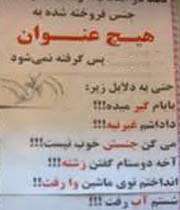 جنس فروخته شده به
هیچ عنوان
پس گرفته نمی‌شود
حتی به دلایل زیر:
بابام گیر میده!!!
داداشم غیرتیه!!!
می گن جنسش خوب نیست!!!
آخه دوستام گفتن زشته!!!
انداختم توی ماشین وا رفت!!
شستم آب رفت!!!